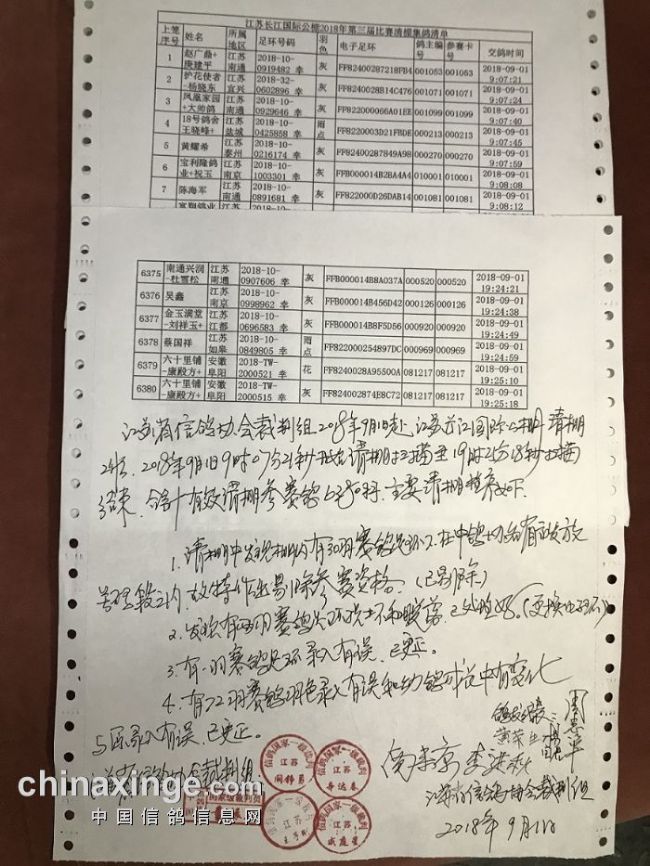 江苏长江国际公棚2018年第三届比赛清棚集鸽清单
上笼序号 姓名 所属地区 足环号码 羽色 电子足环 鸽主编号 参赛卡号 交鸽时间
1 赵广鼎+庚建平 江苏南通 2018-10-0919482 幸 灰 FF82400287218FB4 001053 001053 2018-09-01 9:07:21
2 护花使者-杨晓东 江苏宜兴 2018-32-0602896 幸 灰 FF82400028B14C476 001071 001071 2018-09-01 9:07:24
3 凤凰家园+大帅鸽 江苏南通 2018-10-0929646 幸 灰 FF822000066A01EE 001099 001099 2018-09-01 9:07:40
4 18号鸽舍王晓峰+ 江苏盐城 2018-10-0425858 幸 雨点 FF8220003D21FBDE 000213 000213 2018-09-01 9:07:45
5 黄耀希 江苏泰州 2018-10-0216174 幸 灰 FF82400287849A98 000270 000270 2018-09-01 9:07:59
6 宝利隆鸽业+祝玉 江苏南京 2018-10-1003301 幸 灰 FFB000014B2BA4A4 010001 010001 2018-09-01 9:08:08
7 陈海军 江苏南通 2018-10-0891681 幸 灰 FF822000D26DAB14 001081 001081 2018-09-01 9:08:12
江苏 2018-10- 2018-09-01
6375 南通兴润-杜雪松 江苏南通 2018-10-0907606 幸 灰 FFB000014B8A037A 000520 000520 2018-09-01 19:24:21
6376 吴鑫 江苏南京 2018-10-0998962 幸 灰 FFB000014B456D42 000126 000126 2018-09-01 19:24:38
6377 金玉满堂-刘祥玉+ 江苏江都 2018-10-0696583 幸 灰 FFB000014B8F5D56 000920 000920 2018-09-01 19:24:49
6378 蔡国祥 江苏如皋 2018-10-0849805 幸 雨点 FF822000254897DC 000969 000969 2018-09-01 19:24:59
6379 六十里铺-康殿方+ 安徽阜阳 2018-TW-2000521 幸 花 FF8240028A95500A 081217 081217 2018-09-01 19:25:10
6380 六十里铺-康殿方+ 安徽阜阳 2018-TW-2000515 幸 灰 FF824002874E8C72 081217 081217 2018-09-01 19:25:18
江苏省信鸽协会裁判组2018年9月1日赴江苏长江国际公棚清棚
2018年9月1日9时07分21秒开始清棚扫描至19时25分18秒扫描
结束，合计有效清棚参赛鸽6380羽，主要清棚情况如下
1. 清棚中发现棚内有30羽赛鸽足环不在中鸽协给有效放
号码段之内，故特作出剔除参赛资格。（已剔除）
2. 发现有羽赛鸽 和脱落，已处理好。（更换电子环）
3. 有一羽赛鸽足环录入有误，已更正。
4. 有72羽赛鸽羽色录入有误和幼鸽时说中有变化
与原录入有误，已更正。
江苏省信鸽协会裁判组
信鸽国家一级裁判 江苏
江苏省信鸽协会裁判组
2018年9月1日
chinaxinge.com
中国信鸽信息网